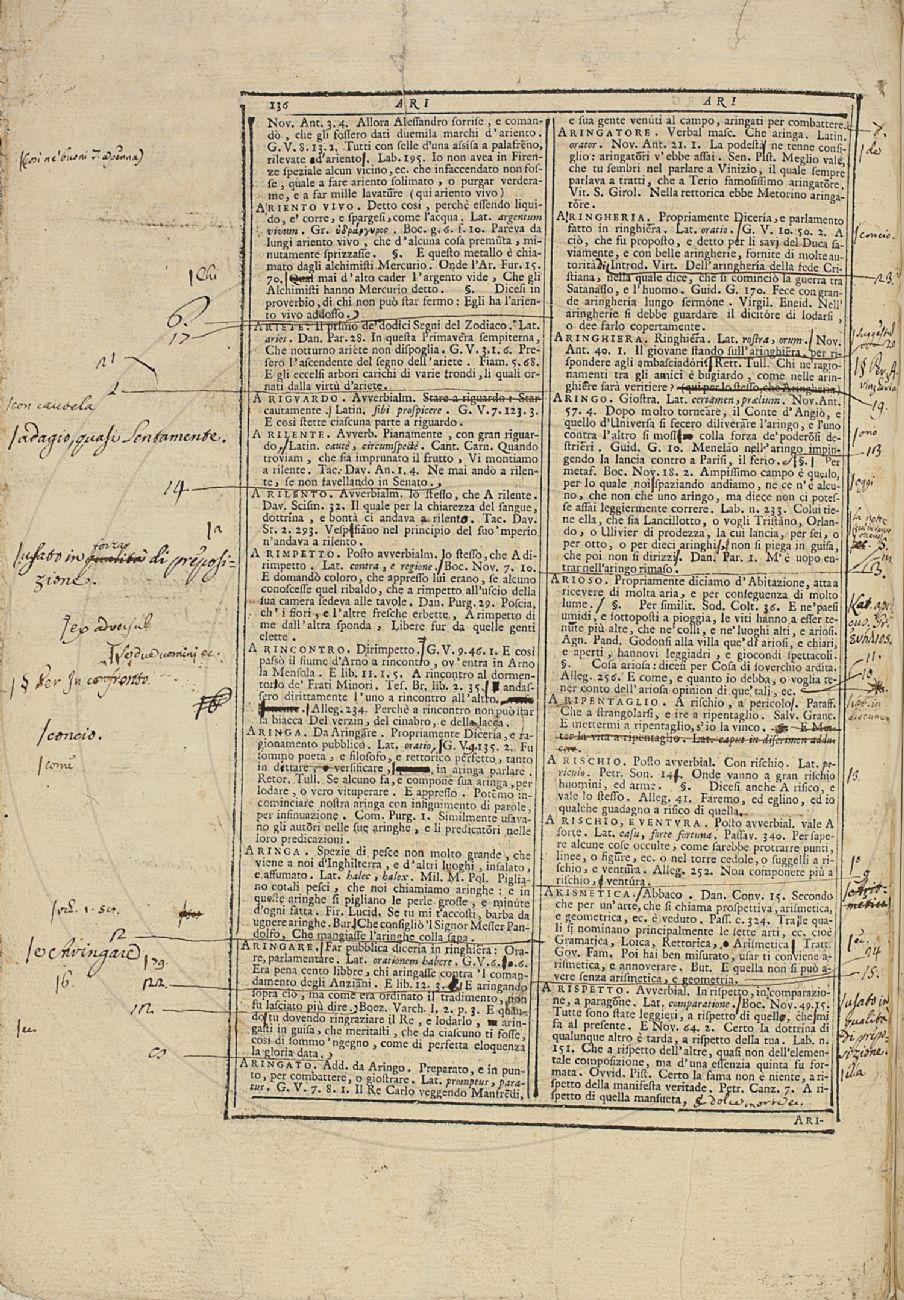 136 ARI ARI
Nov. Ant. 3. 4. Allora Alessandro sorrise, e coman-
dò, che gli fossero dati duemila marchi d'ariento.
G. V. 8. 13. 2. Tutti con selle d'una assisa a palafreno,
rilevate d'ariento. Lab. 195. Io non avea in Firen-
ze speziale alcun vicino, ec. che infaccendato non fos-
se, quale a fare ariento solimato, o purgar verdera-
me, e a far mille lavature (qui ariento vivo)
ARIENTO VIVO. Detto così, perchè essendo liqui-
do, e' corre, e spargesi, come l'acqua. Lat. argentum
vivum. Gr. ὑδράργυρος. Boc. g. 6. f. 10. Pareva da
lungi ariento vivo, che d'alcuna cosa premuta, mi-
nutamente sprizzasse. §. E questo metallo è chia-
mato dagli alchimisti Mercurio. Onde l'Ar. Fur. 15.
70. Qual mai d'alto cader l'argento vide, Che gli
Alchimisti hanno Mercurio detto. §. Dicesi in
proverbio, di chi non può star fermo: Egli ha l'arien-
to vivo addosso.
ARIETE. Il primo de' dodici Segni del Zodiaco. Lat.
aries. Dan. Par. 28. In questa Primavera sempiterna,
Che notturno ariete non dispoglia. G. V. 3. 1. 6. Pre-
sero l'ascendente del segno dell'ariete. Fiam. 5. 68.
E gli eccelsi arbori carichi di varie frondi, li quali or-
nati dalla virtù d'ariete.
A RIGUARDO. Avverbialm. Stare a riguardo: Star
cautamente. Latin. sibi prospicere. G. V. 7. 123. 3.
E così stette ciascuna parte a riguardo.
A RILENTE. Avverb. Pianamente, con gran riguar-
do, Latin. cautè, circumspectè. Cant. Carn. Quando
troviam, che sia imprunato il frutto, Vi montiamo
a rilente. Tac. Dav. An. 1. 4. Ne mai andò a rilen-
te, se non favellando in Senato.
A RILENTO. Avverbialm. lo stesso, che A rilente.
Dav. Scism. 32. Il quale per la chiarezza del sangue,
dottrina, e bontà ci andava a rilento. Tac. Dav.
St. 2. 293. Vespasiano nel principio del suo 'mperio
n'andava a rilento.
A RIMPETTO. Posto avverbialm. lo stesso, che A di-
rimpetto. Lat. contra, e regione. Boc. Nov. 7. 10.
E domandò coloro, che appresso lui erano, se alcuno
conoscesse quel ribaldo, che a rimpetto all'uscio della
sua camera sedeva alle tavole. Dan. Purg. 29. Poscia,
ch' i fiori, e l'altre fresche erbette, A rimpetto di
me dall'altra sponda, Libere fur da quelle genti
elette.
A RINCONTRO. Dirimpetto. G. V. 9. 46. 1. E così
passò il fiume d'Arno a rincontro, ov'entra in Arno
la Mensola. E lib. 11. 1. 5. A rincontro al dormen-
torio de' Frati Minori. Tes. Br. lib. 2. 35. andas-
sero dirittamente l'uno a rincontro all'altro,
Alleg. 234. Perchè a rincontro non può star
la biacca Del verzin, del cinabro, e della lacca.
ARINGA. Da Aringare. Propriamente Diceria, e ra-
gionamento pubblico. Lat. oratio. G. V. 9. 135. 2. Fu
sommo poeta, e filosofo, e rettorico perfetto, tanto
in dittare, versificare, in aringa parlare.
Retor. Tull. Se alcuno fa, e compone sua aringa, per
lodare, o vero vituperare. E appresso. Potemo in-
cominciare nostra aringa con infignimento di parole,
per insinuazione. Com. Purg. 1. Similmente usava-
no gli autori nelle sue aringhe, e li predicatori nelle
loro predicazioni.
ARINGA. Spezie di pesce non molto grande, che
viene a noi d'Inghilterra, e d'altri luoghi, insalato,
e affumato. Lat. halec, halex. Mil. M. Pol. Piglia-
no cotali pesci, che noi chiamiamo aringhe: e in
queste aringhe si pigliano le perle grosse, e minute
d'ogni fatta. Fir. Lucid. Se tu mi t'accosti, barba da
ugnere aringhe. Bur. Che consigliò 'l Signor Messer Pan-
dolfo, Che mangiasse l'aringhe colla sapa.
ARINGARE. Far pubblica diceria in ringhiera: Ora-
re, parlamentare. Lat. orationem habere. G. V. 6. 6.
Era pena cento libbre, chi aringasse contra 'l coman-
damento degli Anziani. E lib. 12. 3. E aringando
sopra ciò, ma come era ordinato il tradimento, non
fu lasciato più dire. Boez. Varch. 1. 2. p. 3. E quan-
do tu dovendo ringraziare il Re, e lodarlo, arin-
gasti in guisa, che meritasti, che da ciascuno ti fosse,
così di sommo 'ngegno, come di perfetta eloquenza
la gloria data.
ARINGATO. Add. da Aringo. Preparato, e in pun-
to, per combattere, o giostrare. Lat. promptus, para-
tus. G. V. 7. 8. 1. Il Re Carlo veggendo Manfredi,
e sua gente venuti al campo, aringati per combattere.
ARINGATORE. Verbal masc. Che aringa. Latin.
orator. Nov. Ant. 21. 1. La podestà ne tenne consi-
glio: aringatori v'ebbe assai. Sen. Pist. Meglio vale,
che tu sembri nel parlare a Vinizio, il quale sempre
parlava a tratti, che a Terio famosissimo aringatore.
Vit. S. Girol. Nella rettorica ebbe Metorino aringa-
tore.
ARINGHERIA. Propriamente Diceria, e parlamento
fatto in ringhiera. Lat. oratio. G. V. 10. 50. 2. A
ciò, che fu proposto, e detto per li savj del Duca sa-
viamente, e con belle aringherie, fornite di molte au-
torità. Introd. Virt. Dell'aringheria della fede Cri-
stiana, della quale dice, che si cominciò la guerra tra
Satanasso, e l'huomo. Guid. G. 170. Fece con gran-
de aringheria lungo sermone. Virgil. Eneid. Nell'
aringherie si debbe guardare il dicitore di lodarsi,
o dee farlo copertamente.
ARINGHIERA. Ringhiera. Lat. rostra, orum. Nov.
Ant. 40. 1. Il giovane stando sull'aringhiera, per ri-
spondere agli ambasciadori. Rett. Tull. Chi ne' ragio-
namenti tra gli amici è bugiardo, come nelle arin-
ghiere sarà veritiere? (qui per lo stesso, che Aringheria)
ARINGO. Giostra. Lat. certamen, prælium. Nov. Ant.
57. 4. Dopo molto torneare, il Conte d'Angiò, e
quello d'Universa si fecero diliverare l'aringo, e l'uno
contra l'altro si mosse colla forza de' poderosi de-
strieri. Guid. G. 10. Menelao nell'aringo impin-
gendo la lancia contro a Parisi, il ferio. §. Per
metaf. Boc. Nov. 18. 2. Ampissimo campo è quello,
per lo quale noi spaziando andiamo, ne ce n'è alcu-
no, che non che uno aringo, ma diece non ci potes-
se assai leggiermente correre. Lab. n. 233. Colui tie-
ne ella, che sia Lancillotto, o vogli Tristano, Orlan-
do, o Ulivier di prodezza, la cui lancia, per sei, o
per otto, o per dieci aringhi, non si piega in guisa,
che poi non si dirizzi. Dan. Par. 1. M'è uopo en-
trar nell'aringo rimaso.
ARIOSO. Propriamente diciamo d'Abitazione, atta a
ricevere di molta aria, e per conseguenza di molto
lume. §. Per similit. Sod. Colt. 36. E ne' paesi
umidi, e sottoposti a pioggia, le viti hanno a esser te-
nute più alte, che ne' colli, e ne' luoghi alti, e ariosi.
Agn. Pand. Godonsi alla villa que' dì ariosi, e chiari,
e aperti, hannovi leggiadri, e giocondi spettacoli.
§. Cosa ariosa: dicesi per Cosa di soverchio ardita.
Alleg. 256. E come, e quanto io debba, o voglia te-
ner conto dell'ariosa opinion di que' tali, ec.
A RIPENTAGLIO. A rischio, a pericolo. Pataff.
Che a strangolarsi, e ire a ripentaglio. Salv. Granc.
E mettermi a ripentaglio, s'io la vinco. E Met-
ter la vita a ripentaglio. Lat. caput in discrimen addu-
cere.
A RISCHIO. Posto avverbial. Con rischio. Lat. pe-
riculo. Petr. Son. 14. Onde vanno a gran rischio
huomini, ed arme. §. Dicesi anche A risico, e
vale lo stesso. Alleg. 41. Faremo, ed eglino, ed io
qualche guadagno a risico di quella.
A RISCHIO, E VENTURA. Posto avverbial. vale A
sorte. Lat. casu, forte fortuna. Passav. 340. Per sape-
re alcune cose occulte, come sarebbe protrarre punti,
linee, o figure, ec. o nel torre cedole, o suggelli a ri-
schio, e ventura. Alleg. 252. Non componete più a
rischio, e ventura.
ARISMETICA. Abbaco. Dan. Conv. 15. Secondo
che per un'arte, che si chiama prospettiva, arismetica,
e geometrica, ec. è veduto. Pass. c. 324. Tra le qua-
li si nominano principalmente le sette arti, ec. cioè
Gramatica, Loica, Rettorica, Arismetica. Tratt.
Gov. Fam. Poi hai ben misurato, usar ti conviene a-
rismetica, e annoverare. But. E quella non si può a-
vere senza arismetica, e geometria.
A RISPETTO. Avverbial. In rispetto, in comparazio-
ne, a paragone. Lat. comparatione. Boc. Nov. 49. 15.
Tutte sono state leggieri, a rispetto di quello, che mi
fa al presente. E Nov. 64. 2. Certo la dottrina di
qualunque altro è tarda, a rispetto della tua. Lab. n.
151. Che a rispetto dell'altre, quasi non dell'elemen-
tale composizione, ma d'una essenzia quinta fu for-
mata. Ovvid. Pist. Certo la fama non è niente, a ri-
spetto della manifesta veritade. Petr. Canz. 7. A ri-
spetto di quella mansueta, e dolce morte ec.
ARI-
Chi
6.
17
21
2
con cautela
adagio, quasi lentamente.
14
a
usato in forza qualità di preposi-
zione.
ex adverso
Verdue uomini ec.
§ Per In confronto.
concio.
come
12
e Aringare
129
16.
122
112
ec.
7.
de
concio.
23.
20
19.
ono
113
oggi
13.
11.
10.
8.
9
Arit-
metica
ec.
24
15.
usato in
qualità
di prepo-
sizione.
ella